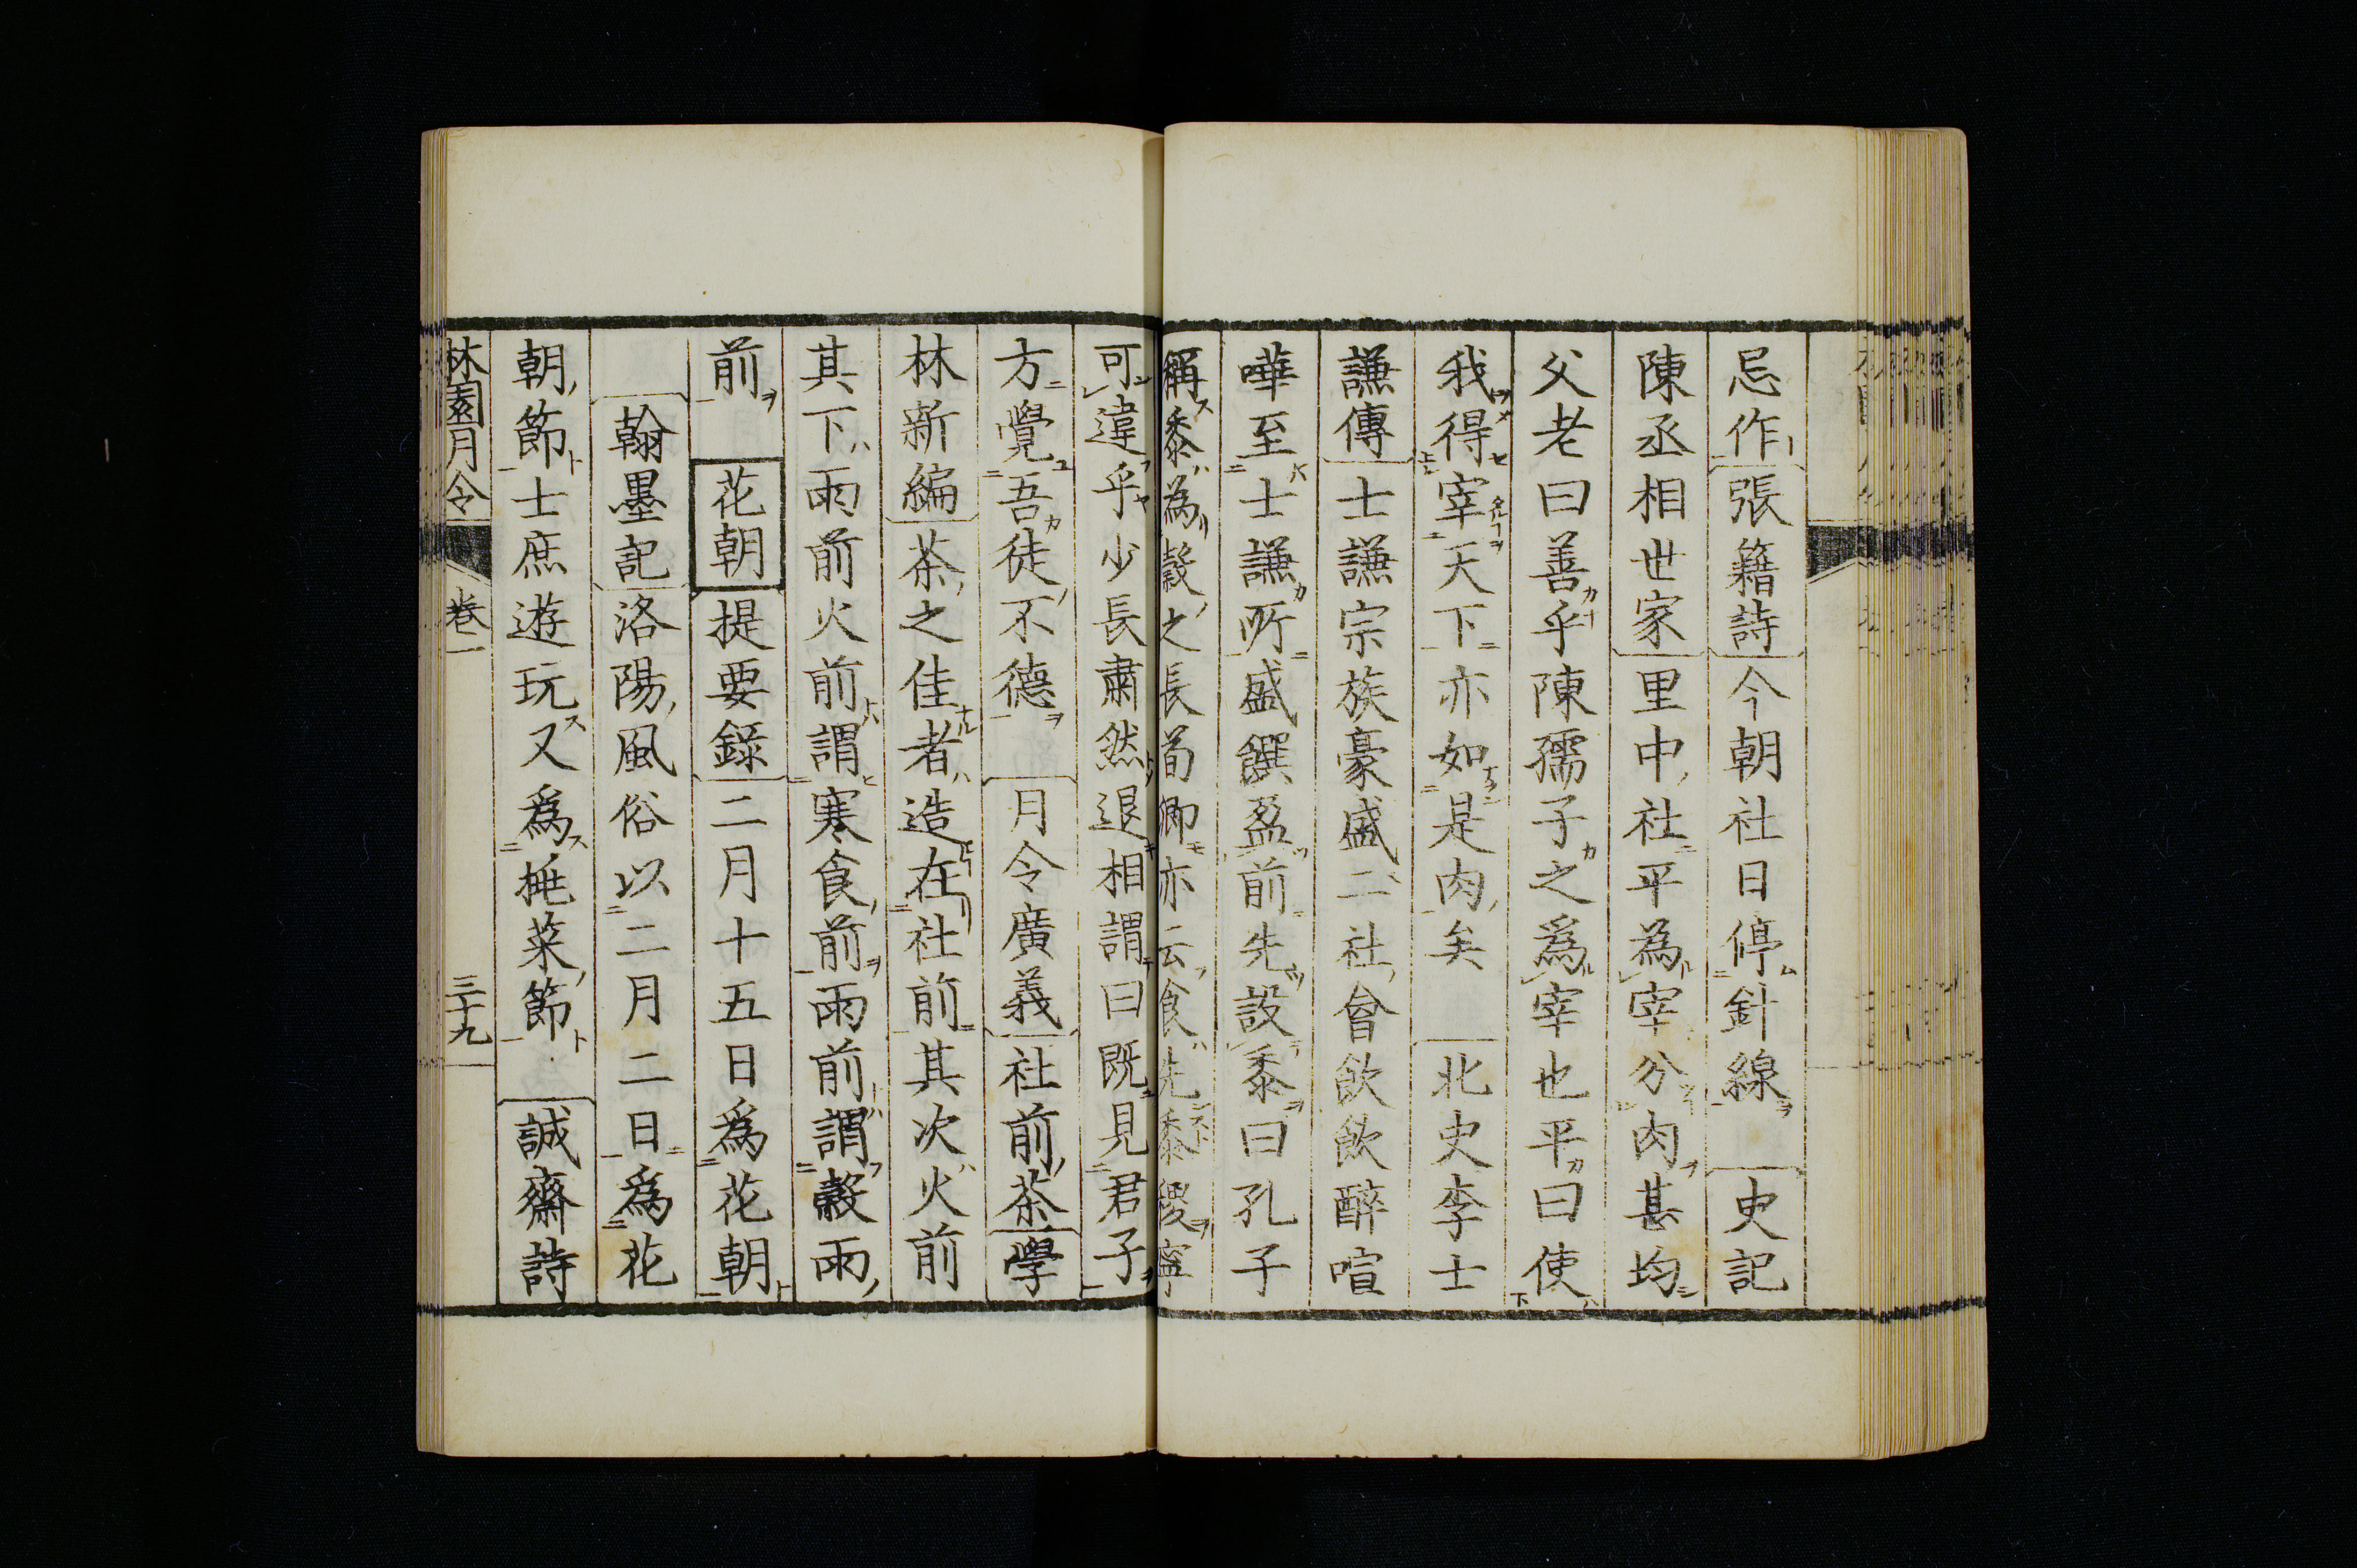 忌作張籍詩今朝社日停針線史記
陳丞相世家里中社平為宰分肉甚均
父老曰善乎陳孺子之爲宰也平曰使
我得宰天下亦如是肉矣北史李士
謙傳士謙宗族豪盛二社會飲飲醉喧
嘩至士謙所盛饌盈前先設黍曰孔子
稱黍為穀之長荀卿亦云食先黍稷寧
可違乎少長肅然退相謂曰既見君子
方覺吾徒不德月令廣義社前茶學
林新編茶之佳者造在社前其次火前
其下雨前火前謂寒食前雨前謂穀雨
前花朝提要録二月十五日爲花朝
翰墨記洛陽風俗以二月二日爲花
朝節士庶遊玩又爲挑菜節誠齋詩
林園月令 卷一 三十九